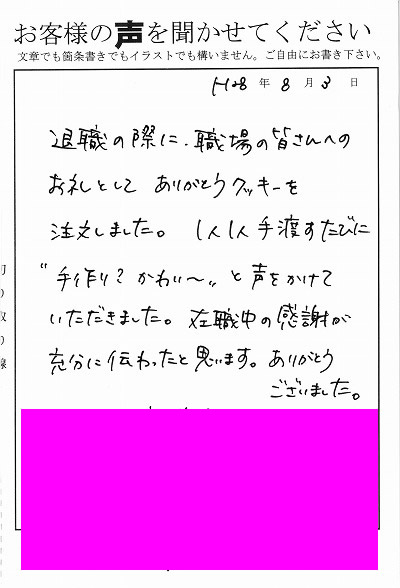 お客様の声を聞かせてください
文章でも箇条書きでもイラストでも構いません。ご自由にお書き下さい。
H28年8月3日
退職の際に、職場の皆さんへの
お礼として ありがとうクッキーを
注文しました。 1人1人手渡すたびに
"手作り? かわい〜" と声をかけて
いただきました。在職中の感謝が
充分に伝わったと思います。ありがとう
ございました。
切り取り線